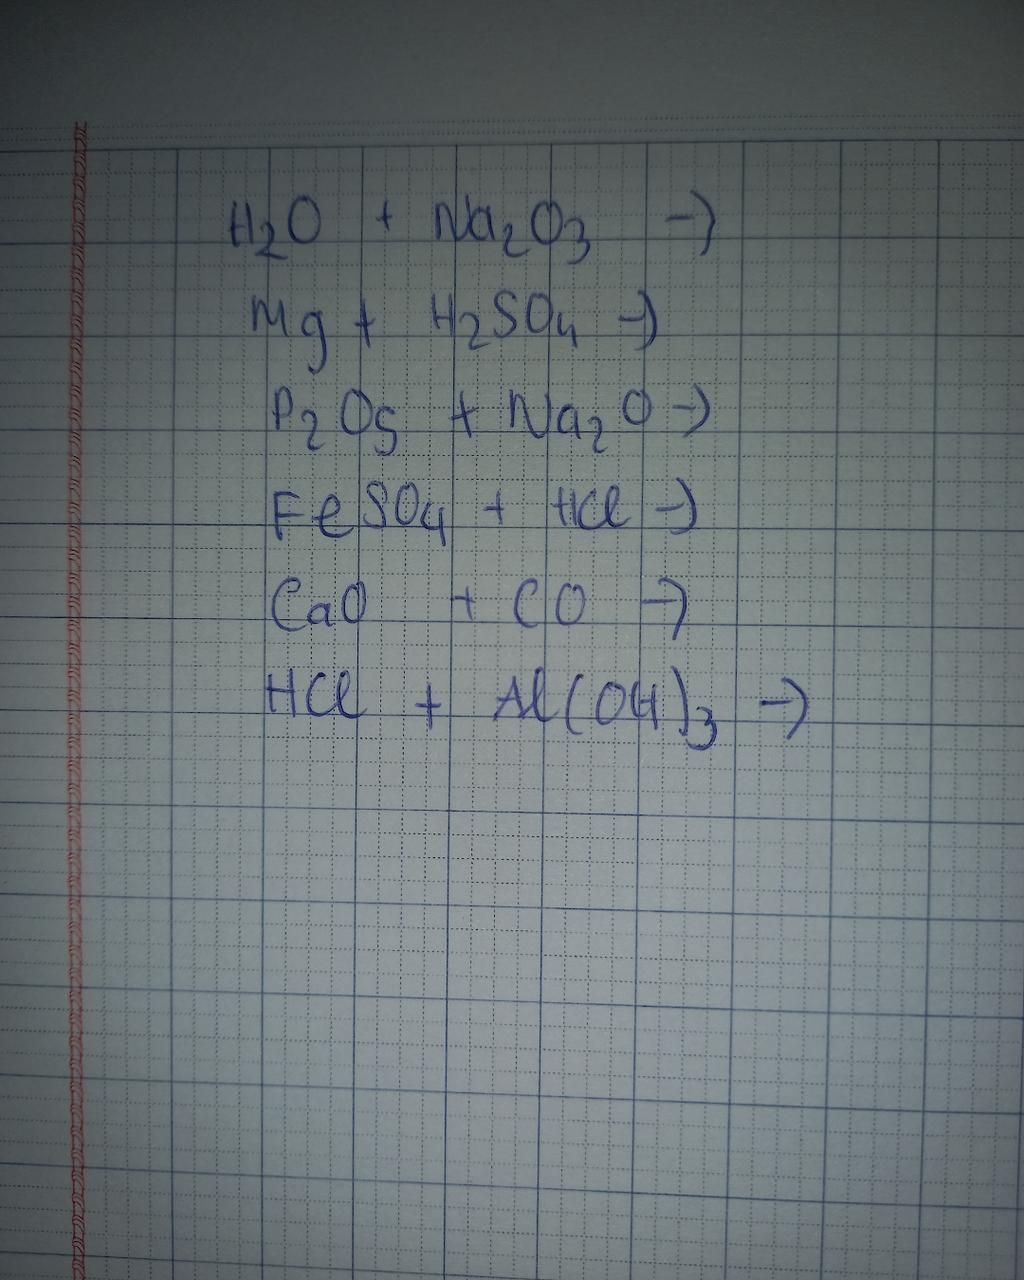 H₂O + Na₂O₃ →
Mg + H₂SO₄ →
P₂O₅ + Na₂O →
FeSO₄ + HCl →
CaO + CO →
HCl + Al(OH)₃ →